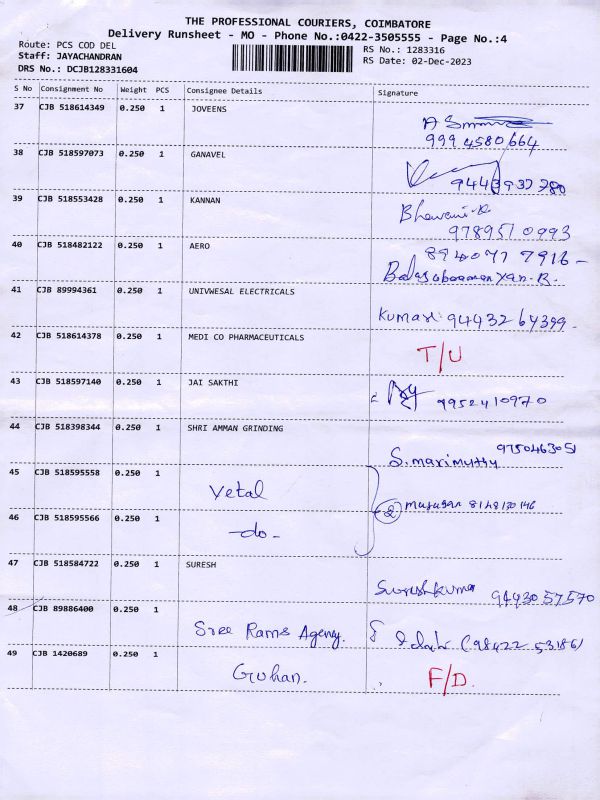 THE PROFESSIONAL COURIERS, COIMBATORE
Delivery Runsheet - MO - Phone No.:0422-3505555 - Page No.:4
Route: PCS COD DEL
Staff: JAYACHANDRAN
DRS No.: DCJB128331604
RS No.: 1283316
RS Date: 02-Dec-2023
S No Consignment No Weight PCS Consignee Details Signature
37 CJB 518614349 0.250 1 JOVEENS
999 4580664
38 CJB 518597073 0.250 1 GANAVEL
9443937780
39 CJB 518553428 0.250 1 KANNAN
Bhavani.R
9789510993
40 CJB 518482122 0.250 1 AERO
894077 7916 -
41 CJB 89994361 0.250 1 UNIVWESAL ELECTRICALS
Kumar 94432 64399.
42 CJB 518614378 0.250 1 MEDI CO PHARMACEUTICALS
T/U
43 CJB 518597140 0.250 1 JAI SAKTHI
9952410970
44 CJB 518398344 0.250 1 SHRI AMMAN GRINDING
9750463051
S. marimuthu
45 CJB 518595558 0.250 1
Vetal
2 murugan 8148130146
46 CJB 518595566 0.250 1
-do-
47 CJB 518584722 0.250 1 SURESH
Sureshkumar 9443057570
48 CJB 89886400 0.250 1
Sree Rams Agency. (98422 53186)
49 CJB 1420689 0.250 1
Guhan. F/D.